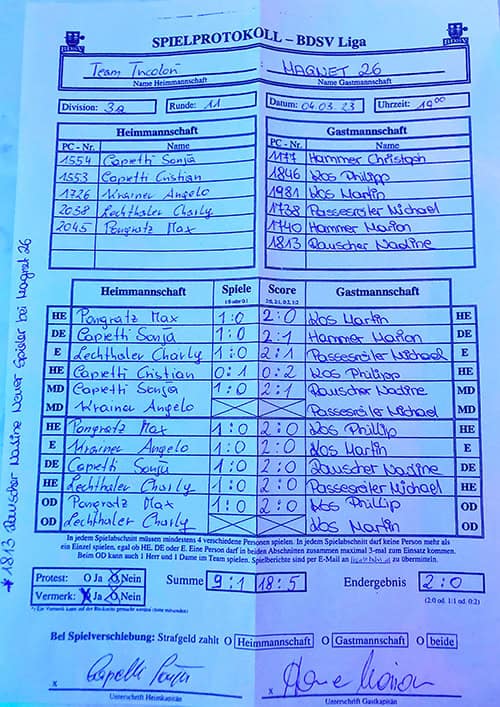 SPIELPROTOKOLL – BDSV Liga
Team Tricolor : MAGNET 26
Name Heimmannschaft Name Gastmannschaft
Division: 3a Runde: 11 Datum: 04.03.23 Uhrzeit: 19⁰⁰
Heimmannschaft Gastmannschaft
PC - Nr. Name PC - Nr. Name
1554 Capietti Sonja 1177 Hammer Christoph
1553 Capietti Cristian 1846 Kos Philipp
1726 Krainer Angelo 1981 Kos Martin
2058 Lechthaler Charly 1738 Passesreiter Michael
2045 Pongratz Max 1740 Hammer Marion
1813 Rauscher Nadine
Heimmannschaft Spiele Score Gastmannschaft
1:0 oder 0:1 2:0, 2:1, 0:2, 1:2
HE Pongratz Max 1:0 2:0 Kos Martin HE
DE Capietti Sonja 1:0 2:1 Hammer Marion DE
E Lechthaler Charly 1:0 2:1 Passesreiter Michael E
HE Capietti Cristian 0:1 0:2 Kos Philipp HE
MD Capietti Sonja 1:0 2:1 Rauscher Nadine MD
MD Krainer Angelo Passesreiter Michael MD
HE Pongratz Max 1:0 2:0 Kos Phillip HE
E Krainer Angelo 1:0 2:0 Kos Martin E
DE Capietti Sonja 1:0 2:0 Rauscher Nadine DE
HE Lechthaler Charly 1:0 2:0 Passesreiter Michael HE
OD Pongratz Max 1:0 2:0 Kos Phillip OD
OD Lechthaler Charly Kos Martin OD
In jedem Spielabschnitt müssen mindestens 4 verschiedene Personen spielen. In jedem Spielabschnitt darf keine Person mehr als
ein Einzel spielen, egal ob HE, DE oder E. Eine Person darf in beiden Abschnitten zusammen maximal 3-mal zum Einsatz kommen.
Beim OD kann auch 1 Herr und 1 Dame im Team spielen. Spielberichte sind per E-Mail an zu übermitteln.
Protest: O Ja O Nein Summe 9:1 18:5 Endergebnis 2:0
Vermerk: Ja O Nein (2:0 od. 1:1 od. 0:2)
Bei Spielverschiebung: Strafgeld zahlt O Heimmannschaft O Gastmannschaft O beide
x x
Unterschrift Heimkapitän Unterschrift Gastkapitän
* 1813 Rauscher Nadine Neuer Spieler bei Magnet 26